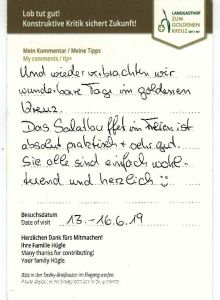 Lob tut gut!
Konstruktive Kritik sichert Zukunft!
LANDGASTHOF
ZUM
GOLDENEN
KREUZ
Mein Kommentar / Meine Tipps
My comments / tips
Und wieder verbrachten wir
wunderbare Tage im goldenen
Kreuz.
Das Salatbuffet im Freien ist
absolut praktisch + sehr gut.
Sie alle sind einfach wohl-
tuend und herzlich
Besuchsdatum
Date of visit
13.-16.6.19
Herzlichen Dank fürs Mitmachen!
Ihre Familie Hügle
Many thanks for contributing!
Your family Hügle
Bitte in den Smiley-Briefkasten im Eingang werfen.